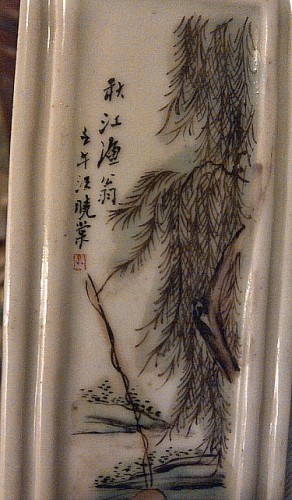 秋江漁翁
壬午汪曉棠